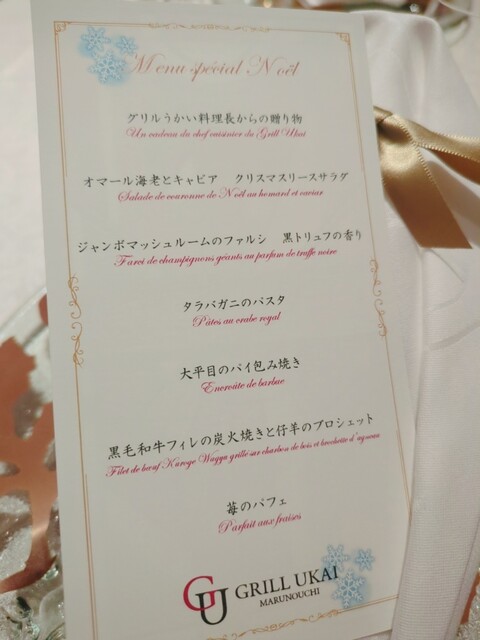 Menu spécial Noël
グリルうかい料理長からの贈り物
Un cadeau du chef cuisinier du Grill Ukai
オマール海老とキャビア　クリスマスリースサラダ
Salade de couronne de Noël au homard et caviar
ジャンボマッシュルームのファルシ　黒トリュフの香り
Farci de champignons géants au parfum de truffe noire
タラバガニのパスタ
Pâtes au crabe royal
大平目のパイ包み焼き
Encroûte de barbue
黒毛和牛フィレの炭火焼きと仔羊のブロシェット
Filet de bœuf Kuroge Wagyu grillé sur charbon de bois et brochette d'agneau
苺のパフェ
Parfait aux fraises
GU GRILL UKAI
MARUNOUCHI